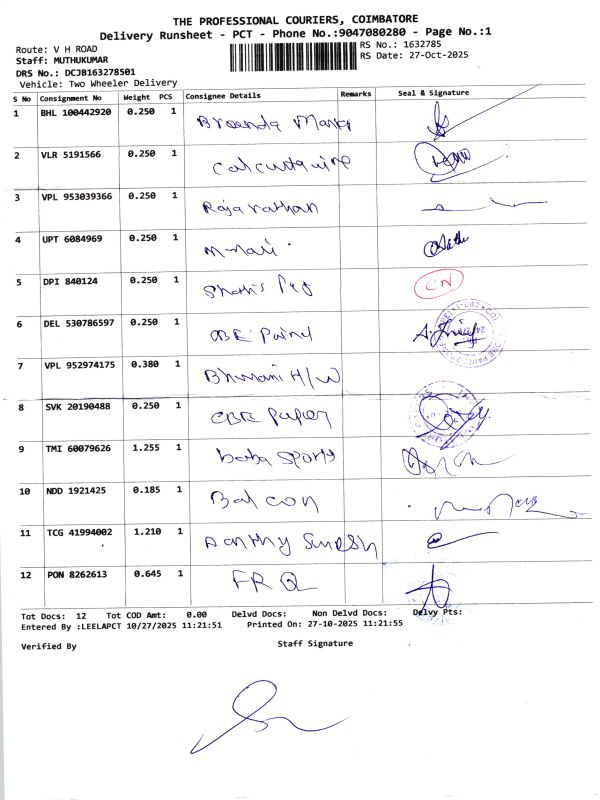 THE PROFESSIONAL COURIERS, COIMBATORE
Delivery Runsheet - PCT - Phone No.:9047080280 - Page No.:1
Route: V H ROAD
RS No.: 1632785
Staff: MUTHUKUMAR
RS Date: 27-Oct-2025
DRS No.: DCJB163278501
Vehicle: Two Wheeler Delivery
S No Consignment No Weight PCS Consignee Details Remarks Seal & Signature
1 BHL 100442920 0.250 1
2 VLR 5191566 0.250 1
3 VPL 953039366 0.250 1 Raja rathan
4 UPT 6084969 0.250 1
5 DPI 840124 0.250 1 CN
6 DEL 530786597 0.250 1 CBE Paint
7 VPL 952974175 0.380 1 H/W
8 SVK 20190488 0.250 1 CBE Paper
9 TMI 60079626 1.255 1 baba sports
10 NDD 1921425 0.185 1 Balcon
11 TCG 41994002 1.210 1
12 PON 8262613 0.645 1
Tot Docs: 12 Tot COD Amt: 0.00 Delvd Docs: Non Delvd Docs: Delvy Pts:
Entered By :LEELAPCT 10/27/2025 11:21:51 Printed On: 27-10-2025 11:21:55
Verified By Staff Signature